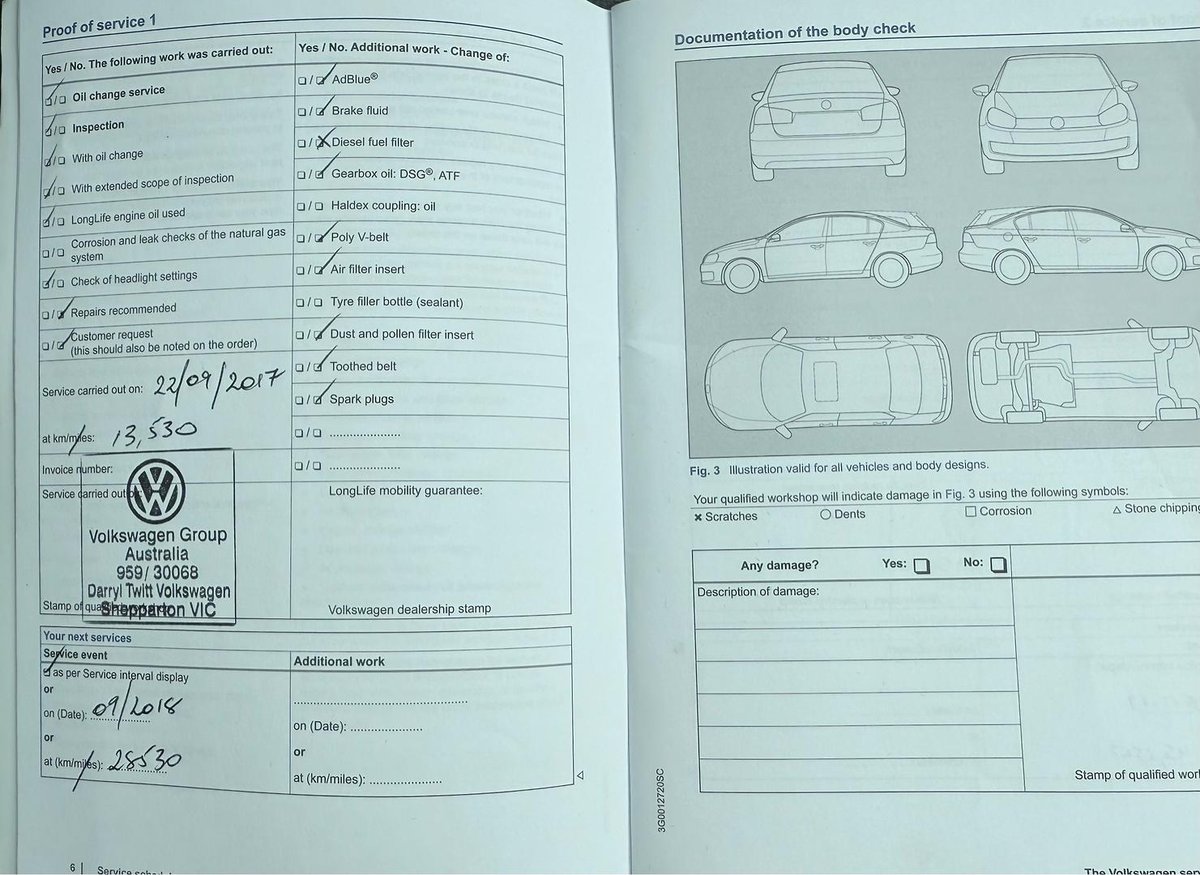 Proof of service 1
Yes / No. The following work was carried out:
Oil change service
Inspection
With oil change
With extended scope of inspection
LongLife engine oil used
Corrosion and leak checks of the natural gas
system
Check of headlight settings
Repairs recommended
Customer request
(this should also be noted on the order)
Service carried out on: 22/09/2017
at km/miles: 13,530
Invoice number:
Service carried out
Volkswagen Group
Australia
959/ 30068
Darryl Twitt Volkswagen
Shepparton VIC
Stamp of
Yes / No. Additional work - Change of:
AdBlue®
Brake fluid
Diesel fuel filter
Gearbox oil: DSG®, ATF
Haldex coupling: oil
Poly V-belt
Air filter insert
Tyre filler bottle (sealant)
Dust and pollen filter insert
Toothed belt
Spark plugs
LongLife mobility guarantee:
Volkswagen dealership stamp
Your next services
Service event
as per Service interval display
or
on (Date): 09/2018
or
at (km/miles): 28530
Additional work
on (Date):
or
at (km/miles):
6 | Service
Documentation of the body check
Fig. 3 Illustration valid for all vehicles and body designs.
Your qualified workshop will indicate damage in Fig. 3 using the following symbols:
Scratches Dents Corrosion Stone chipping
Any damage? Yes: No:
Description of damage:
Stamp of qualified wor
3G0012720SC
The Volkswagen ser